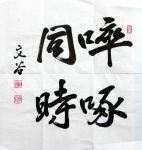 啐啄
同時
文谷